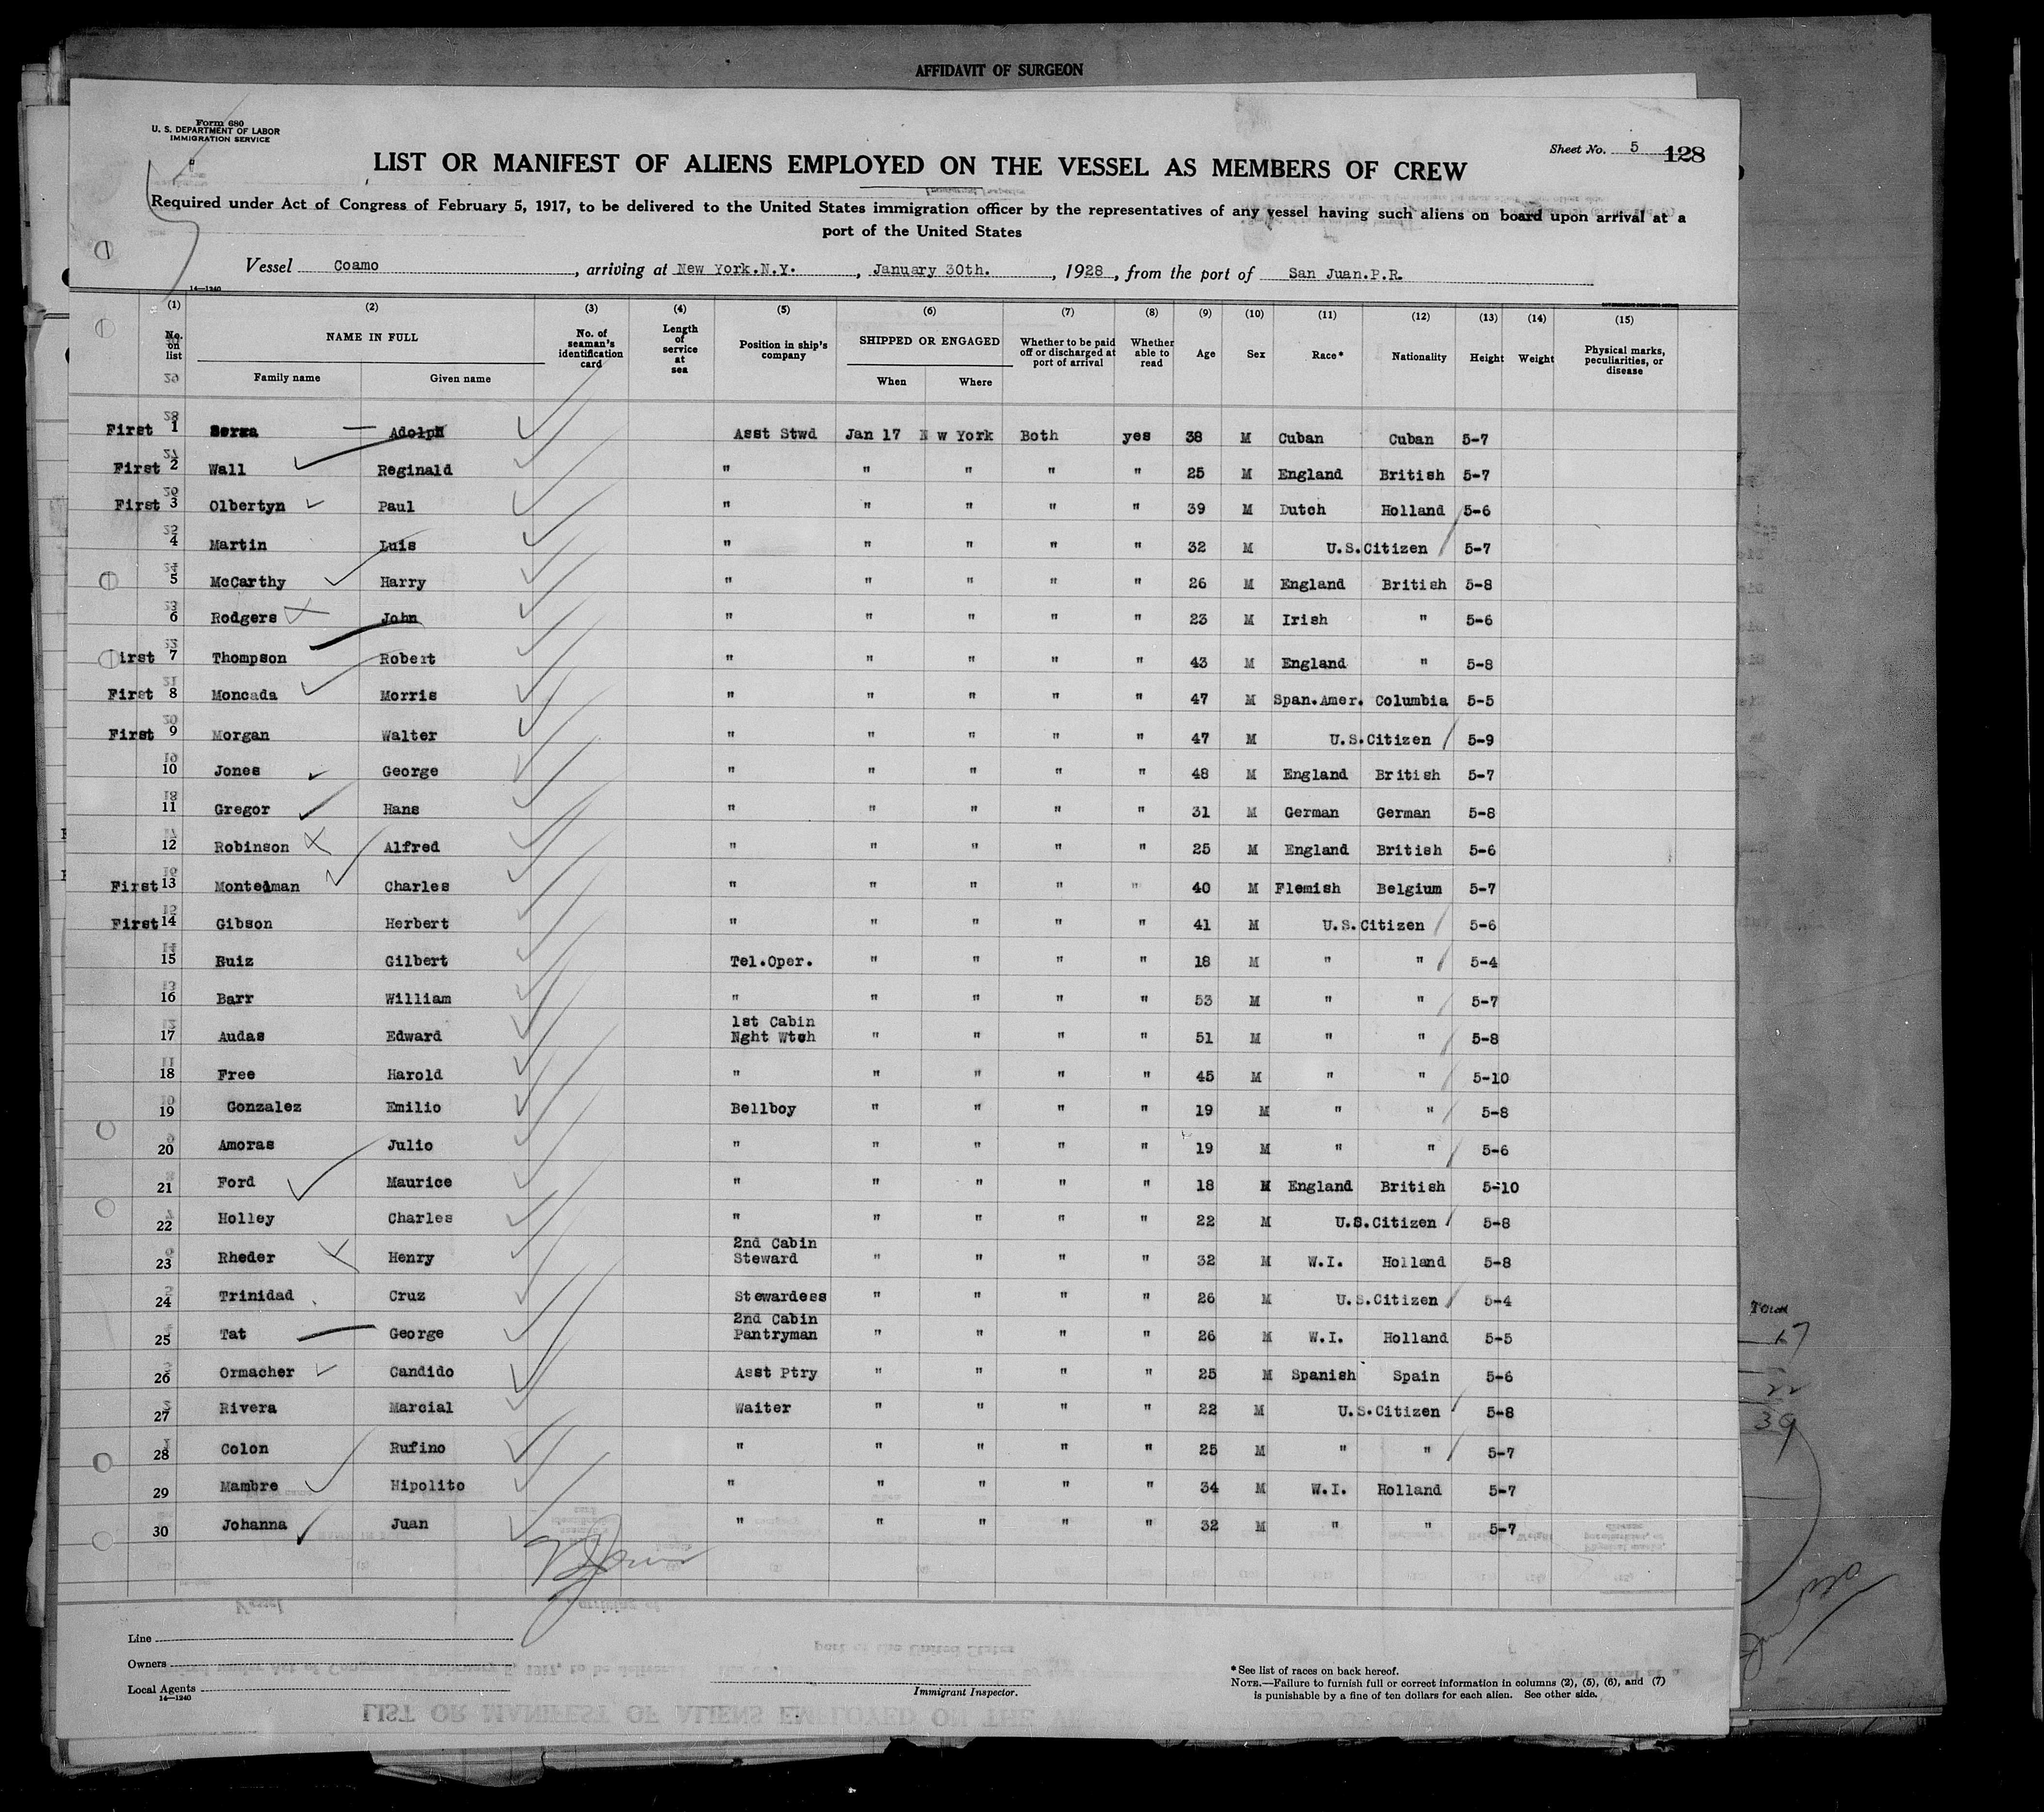 AFFIDAVIT OF SURGEON
Form 680
U. S. DEPARTMENT OF LABOR
IMMIGRATION SERVICE
Sheet No. 5 128
LIST OR MANIFEST OF ALIENS EMPLOYED ON THE VESSEL AS MEMBERS OF CREW
Required under Act of Congress of February 5, 1917, to be delivered to the United States immigration officer by the representatives of any vessel having such aliens on board upon arrival at a
port of the United States
Vessel Coamo, arriving at New York.N.Y., January 30th., 1928, from the port of San Juan.P.R.
14—1240
(1) (2) (3) (4) (5) (6) (7) (8) (9) (10) (11) (12) (13) (14) (15)
No. on list NAME IN FULL Family name Given name No. of seaman's identification card Length of service at sea Position in ship's company SHIPPED OR ENGAGED When Where Whether to be paid off or discharged at port of arrival Whether able to read Age Sex Race* Nationality Height Weight Physical marks, peculiarities, or disease
First 1 Serra Adolph Asst Stwd Jan 17 N w York Both yes 38 M Cuban Cuban 5-7
First 2 Wall Reginald " " " " " 25 M England British 5-7
First 3 Olbertyn Paul " " " " " 39 M Dutch Holland 5-6
4 Martin Luis " " " " " 32 M U.S.Citizen 5-7
5 McCarthy Harry " " " " " 26 M England British 5-8
6 Rodgers John " " " " " 23 M Irish " 5-6
First 7 Thompson Robert " " " " " 43 M England " 5-8
First 8 Moncada Morris " " " " " 47 M Span.Amer. Columbia 5-5
First 9 Morgan Walter " " " " " 47 M U.S.Citizen 5-9
10 Jones George " " " " " 48 M England British 5-7
11 Gregor Hans " " " " " 31 M German German 5-8
12 Robinson Alfred " " " " " 25 M England British 5-6
First 13 Montedman Charles " " " " " 40 M Flemish Belgium 5-7
First 14 Gibson Herbert " " " " " 41 M U.S.Citizen 5-6
15 Ruiz Gilbert Tel.Oper. " " " " 18 M " " 5-4
16 Barr William " " " " " 53 M " " 5-7
17 Audas Edward 1st Cabin Nght Wtch " " " " 51 M " " 5-8
18 Free Harold " " " " " 45 M " " 5-10
19 Gonzalez Emilio Bellboy " " " " 19 M " " 5-8
20 Amoras Julio " " " " " 19 M " " 5-6
21 Ford Maurice " " " " " 18 M England British 5-10
22 Holley Charles " " " " " 22 M U.S.Citizen 5-8
23 Rheder Henry 2nd Cabin Steward " " " " 32 M W.I. Holland 5-8
24 Trinidad Cruz Stewardess " " " " 26 M U.S.Citizen 5-4
25 Tat George 2nd Cabin Pantryman " " " " 26 M W.I. Holland 5-5
26 Ormacher Candido Asst Ptry " " " " 25 M Spanish Spain 5-6
27 Rivera Marcial Waiter " " " " 22 M U.S.Citizen 5-8
28 Colon Rufino " " " " " 25 M " " 5-7
29 Mambre Hipolito " " " " " 34 M W.I. Holland 5-7
30 Johanna Juan " " " " " 32 M " " 5-7
Total
17
22
39
Line
Owners
Local Agents
14—1240
Immigrant Inspector.
*See list of races on back hereof.
NOTE.—Failure to furnish full or correct information in columns (2), (5), (6), and (7)
is punishable by a fine of ten dollars for each alien. See other side.